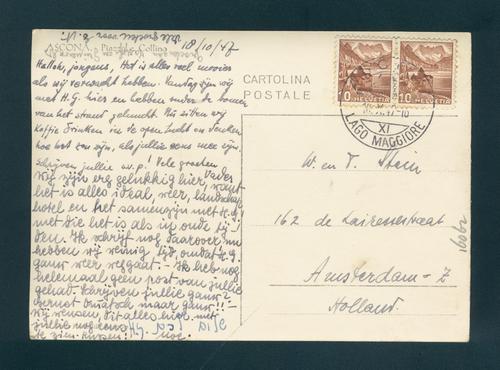 ASCONA - Piazza e Collina
18/10/47
Hallo, jongens, Het is alles veel mooier
als wij verwacht hebben. Vandaag zijn wij
met H.G. hier en hebben onder de bomen
van het strand geluncht. Nu zitten wij
Koffie drinken in de open lucht en denken
hoe het zou zijn, als jullie eens mee zijn.
Schrijven jullie w.p! Vele groeten Vader
Wij zijn erg gelukkig hier, want
het is alles ideaal, weer, landschap
hotel en het samenzijn met H.G.
met die het is als in oude tij
den. Ik schrijf nog daarover nu
hebben wij weinig tijd, omdat H.G.
gauw weer weggaat. - Ik heb nog
helemaal geen post van jullie
gehad. Schrijven jullie gauw?
maar gauw!!
wij wensen, dit alles hier met
jullie nog eens
te zien. Kussen!
CARTOLINA
POSTALE
10 HELVETIA
10 HELVETIA
XI
LAGO MAGGIORE
W. en T. Stein
162 de Lairessestraat
Amsterdam - Z
Holland.
16062